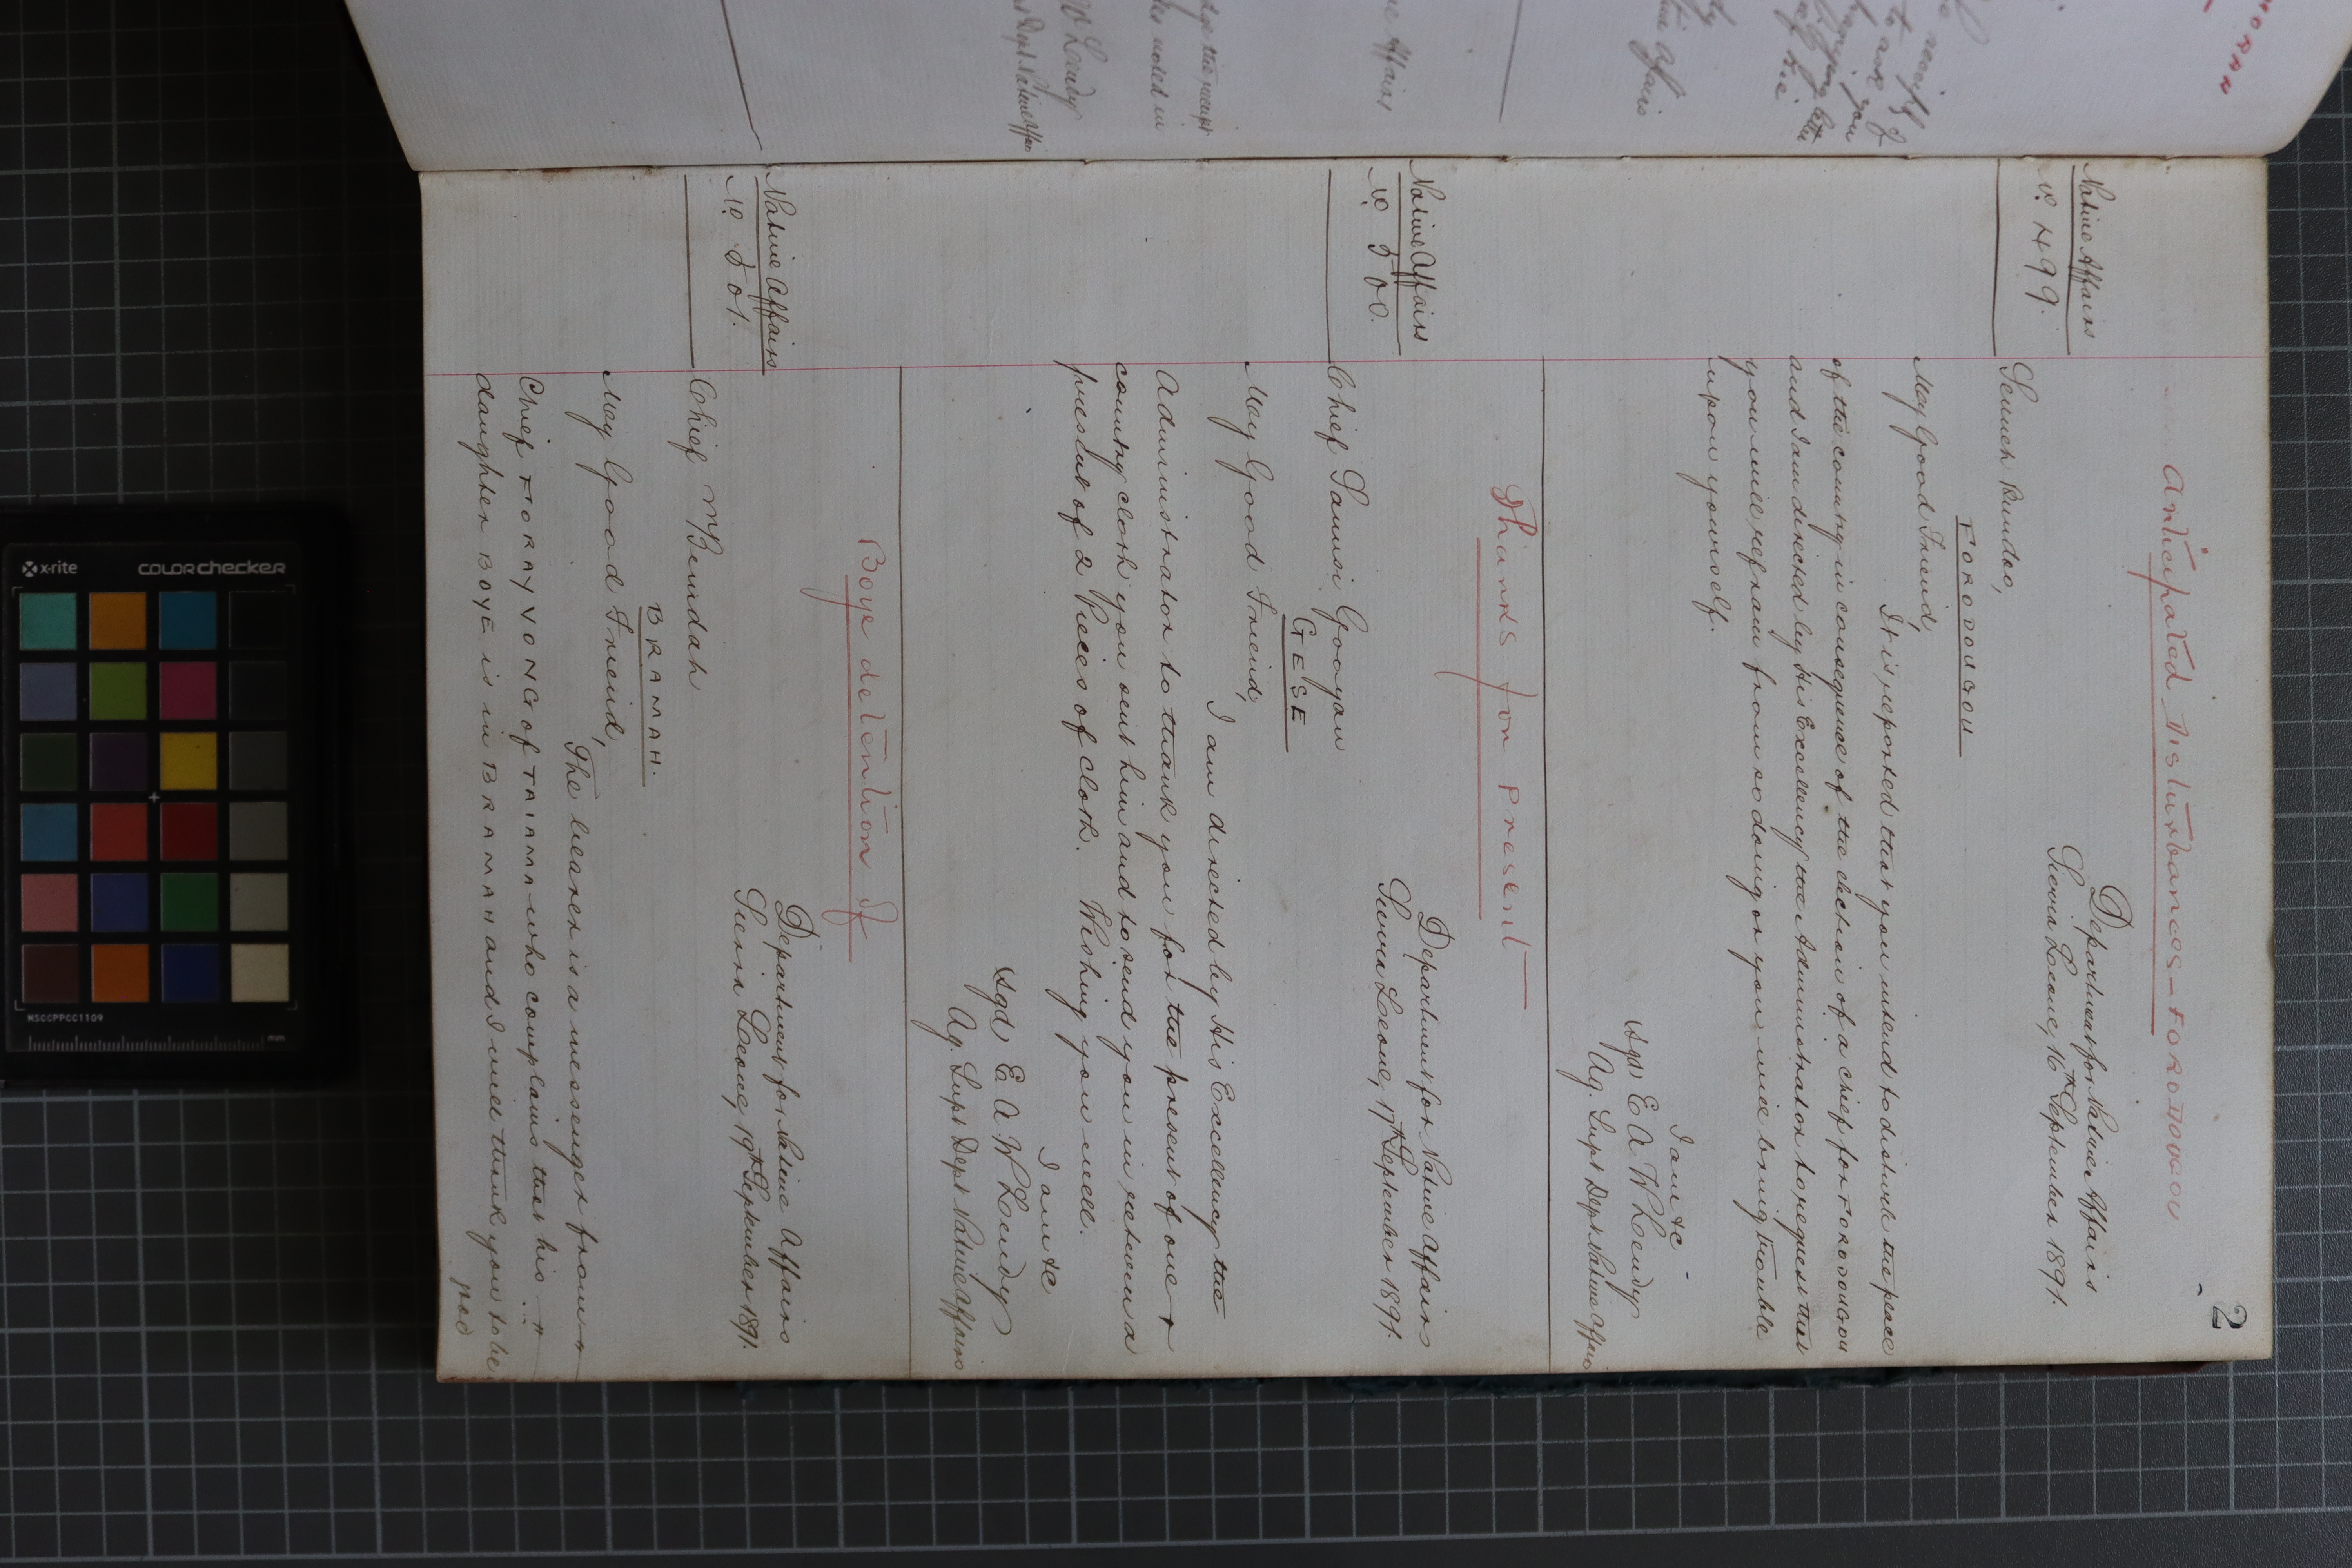 2
Anticipated Disturbances - FORODUGU
Native Affairs
No. 499.
Department for Native Affairs
Sierra Leone, 16th September 1891.
Bundoo,
FORODUGOU
My Good Friend,
It is reported that you intend to disturb the peace
of the country in consequence of the election of a chief for FORODUGOU
and I am directed by His Excellency the Administrator to request that
you will refrain from so doing or you will bring trouble
upon yourself.
I am &c
Sgd E A W Lendy
Ag. Supt Dept Native Affairs
Thanks for present
Native Affairs
No. 500.
Department for Native Affairs
Sierra Leone, 17th September 1891.
Chief Sannsi Gooyan
GESE
My Good Friend,
I am directed by His Excellency the
Administrator to thank you for the present of one
country cloth you sent him and to send you in return a
present of 2 Pieces of cloth. Wishing you well.
I am &c
Sgd E A W Lendy
Ag. Supt Dept Native Affairs
Boye detention of
Native Affairs
No. 501.
Department for Native Affairs
Sierra Leone, 19th September 1891.
Chief M'Bundah
BRAMAH.
My Good Friend,
The bearer is a messenger from
Chief FORAY VONG of TAIAMA who complains that his
daughter BOYE is in BRAMAH and I will thank you to be
x-rite
colorchecker
MSCCPPCC1109
mm